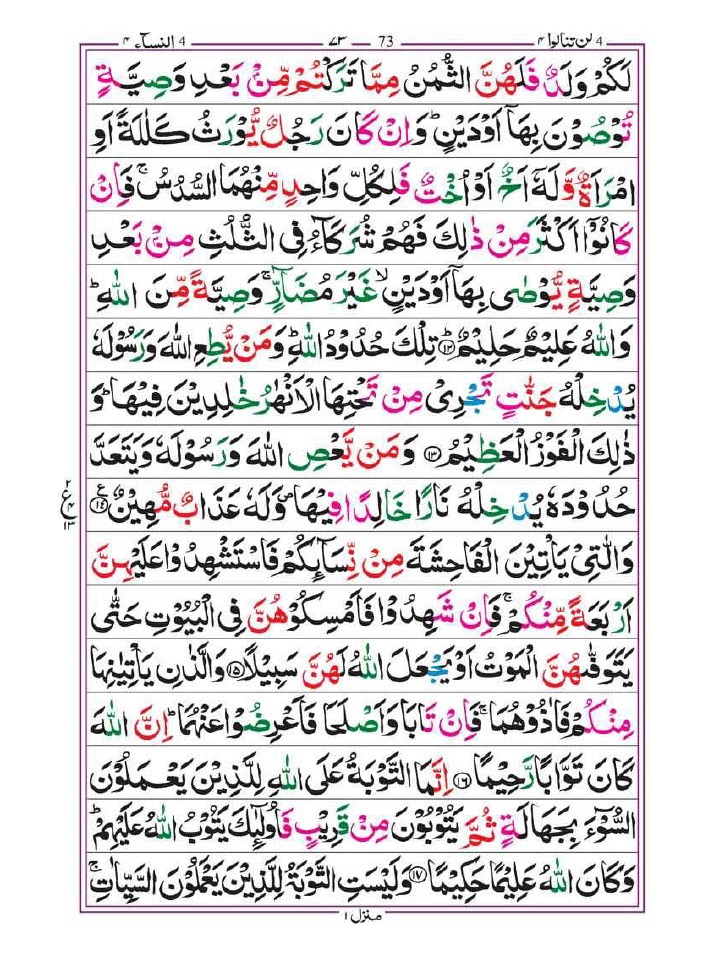 لن تنالوا ٤ 73 ٧٣ النسآء ٤
لَكُمْ وَلَدٌ فَلَهُنَّ الثُّمُنُ مِمَّا تَرَكْتُمْ مِّنْۢ بَعْدِ وَصِيَّةٍ
تُوْصُوْنَ بِهَاۤ اَوْ دَيْنٍ ؕ وَاِنْ كَانَ رَجُلٌ يُّوْرَثُ كَلٰلَةً اَوِ
امْرَاَةٌ وَّلَهٗۤ اَخٌ اَوْ اُخْتٌ فَلِكُلِّ وَاحِدٍ مِّنْهُمَا السُّدُسُ ۚ فَاِنْ
كَانُوْۤا اَكْثَرَ مِنْ ذٰلِكَ فَهُمْ شُرَكَآءُ فِى الثُّلُثِ مِنْۢ بَعْدِ
وَصِيَّةٍ يُّوْصٰى بِهَاۤ اَوْ دَيْنٍ ۙ غَيْرَ مُضَآرٍّ ۚ وَصِيَّةً مِّنَ اللّٰهِ ؕ
وَاللّٰهُ عَلِيْمٌ حَلِيْمٌ ؕ ﴿۱۲﴾ تِلْكَ حُدُوْدُ اللّٰهِ ؕ وَمَنْ يُّطِعِ اللّٰهَ وَرَسُوْلَهٗ
يُدْخِلْهُ جَنّٰتٍ تَجْرِىْ مِنْ تَحْتِهَا الْاَنْهٰرُ خٰلِدِيْنَ فِيْهَا ؕ وَ
ذٰلِكَ الْفَوْزُ الْعَظِيْمُ ﴿۱۳﴾ وَمَنْ يَّعْصِ اللّٰهَ وَرَسُوْلَهٗ وَيَتَعَدَّ
حُدُوْدَهٗ يُدْخِلْهُ نَارًا خَالِدًا فِيْهَا ۪ وَلَهٗ عَذَابٌ مُّهِيْنٌ ﴿۱۴﴾
وَالّٰتِىْ يَاْتِيْنَ الْفَاحِشَةَ مِنْ نِّسَآئِكُمْ فَاسْتَشْهِدُوْا عَلَيْهِنَّ
اَرْبَعَةً مِّنْكُمْ ۚ فَاِنْ شَهِدُوْا فَاَمْسِكُوْهُنَّ فِى الْبُيُوْتِ حَتّٰى
يَتَوَفّٰهُنَّ الْمَوْتُ اَوْ يَجْعَلَ اللّٰهُ لَهُنَّ سَبِيْلًا ﴿۱۵﴾ وَالَّذٰنِ يَاْتِيٰنِهَا
مِنْكُمْ فَاٰذُوْهُمَا ۚ فَاِنْ تَابَا وَاَصْلَحَا فَاَعْرِضُوْا عَنْهُمَا ؕ اِنَّ اللّٰهَ
كَانَ تَوَّابًا رَّحِيْمًا ﴿۱۶﴾ اِنَّمَا التَّوْبَةُ عَلَى اللّٰهِ لِلَّذِيْنَ يَعْمَلُوْنَ
السُّوْٓءَ بِجَهَالَةٍ ثُمَّ يَتُوْبُوْنَ مِنْ قَرِيْبٍ فَاُولٰٓئِكَ يَتُوْبُ اللّٰهُ عَلَيْهِمْ ؕ
وَكَانَ اللّٰهُ عَلِيْمًا حَكِيْمًا ﴿۱۷﴾ وَلَيْسَتِ التَّوْبَةُ لِلَّذِيْنَ يَعْمَلُوْنَ السَّيِّاٰتِ ۚ
منزل ١